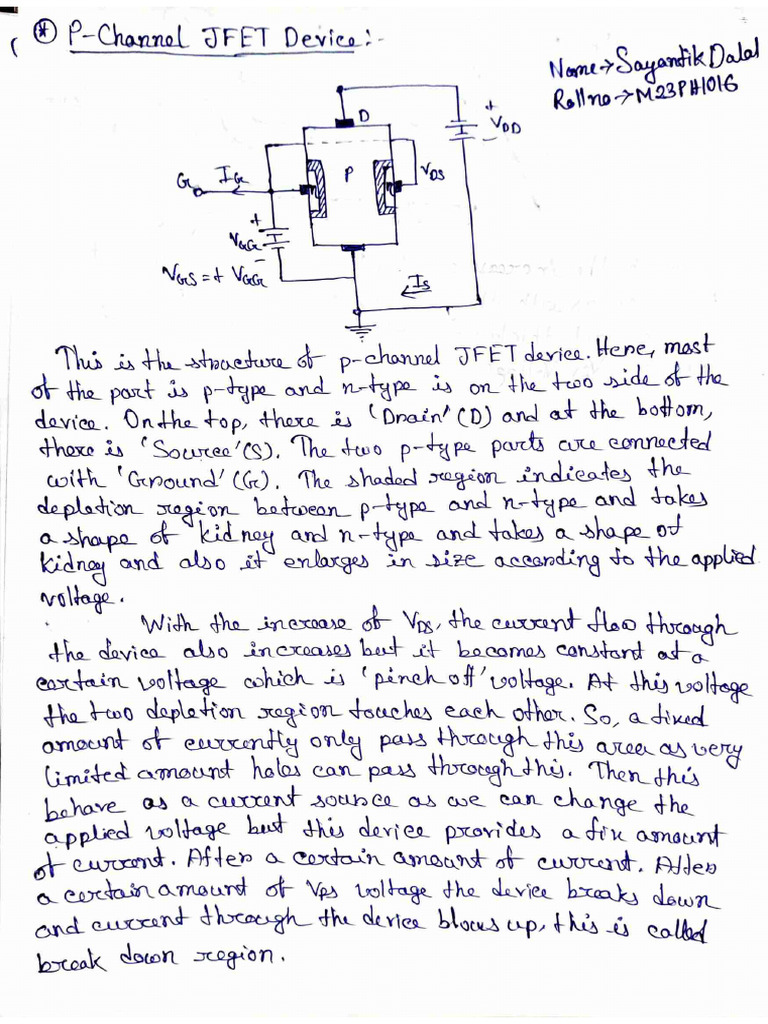 * P-Channel JFET Device:-
Name→Sayantik Dalal
Roll no→M23PH1016
D
+
VDD
-
P
VDS
G
IG
+
VGG
-
VGS = + VGG
IS
This is the structure of p-channel JFET device. Here, most
of the part is p-type and n-type is on the two side of the
device. On the top, there is 'Drain' (D) and at the bottom,
there is 'Source'(S). The two p-type parts are connected
with 'Ground' (G). The shaded region indicates the
depletion region between p-type and n-type and takes
a shape of kidney and n-type and takes a shape of
kidney and also it enlarges in size according to the applied
voltage.
With the increase of VDS, the current flow through
the device also increases but it becomes constant at a
certain voltage which is 'pinch off' voltage. At this voltage
the two depletion region touches each other. So, a fixed
amount of currently only pass through this area as very
limited amount holes can pass through this. Then this
behave as a current source as we can change the
applied voltage but this device provides a fix amount
of current. After a certain amount of current. After
a certain amount of VDS voltage the device breaks down
and current through the device blows up, this is called
break down region.